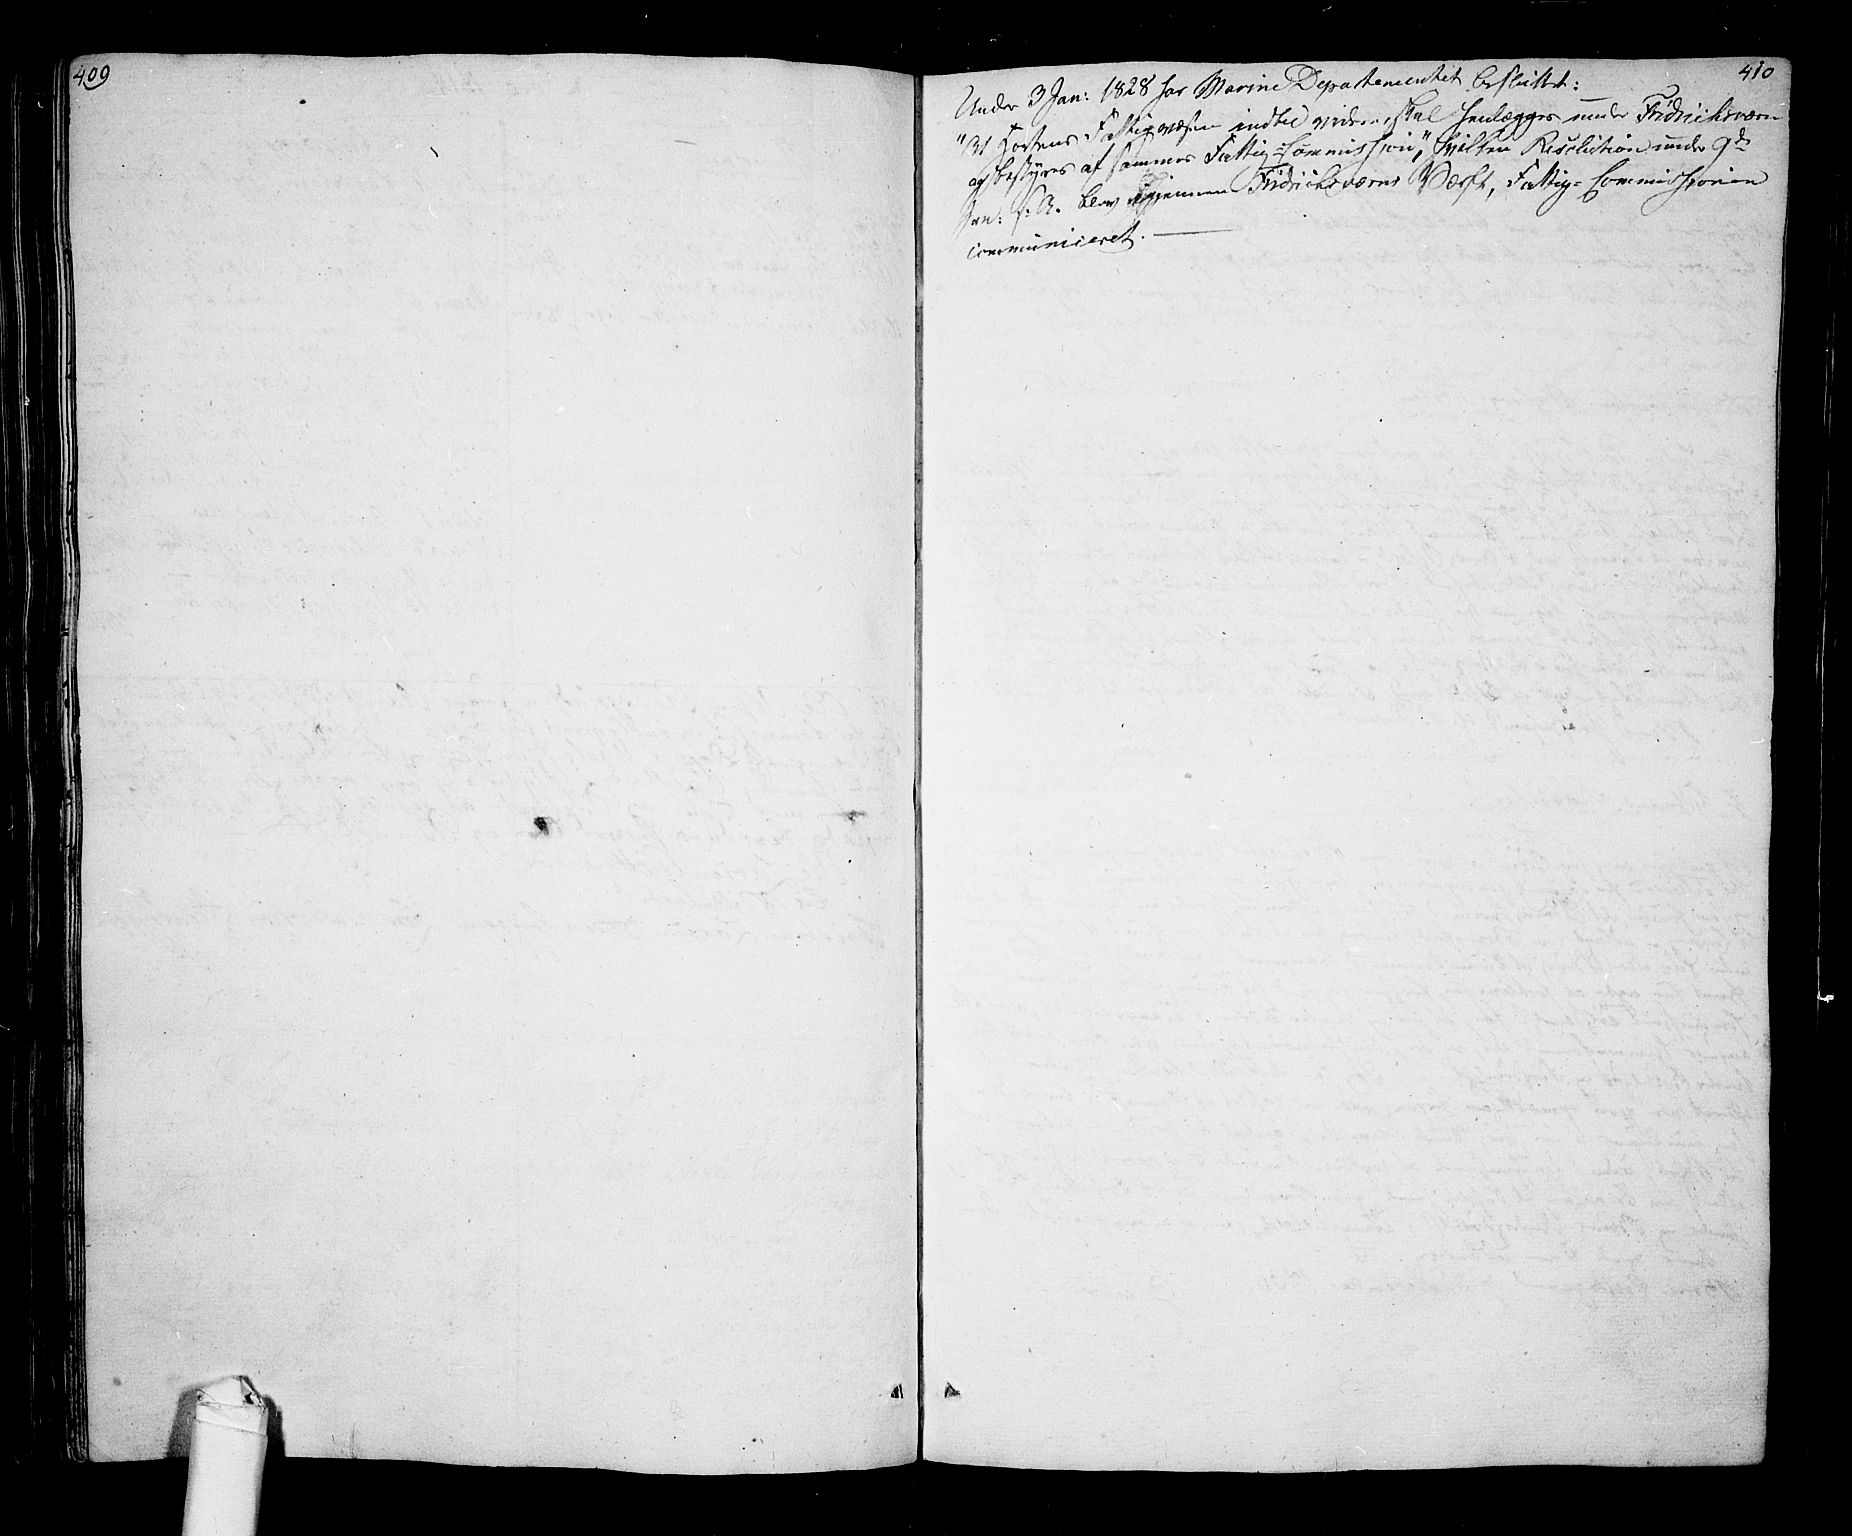 409
410
Under 3 Jan: 1828 har Marine Departementet besluttet:
"At Hortens Fattigvæsen indtil videre, skal henlægges under Fridrichsværn
og bestyres af sammes Fattig-Commission", hvilken Resolution under 9de
Jan: s: A. blev igjennem Fridrichsværns Værft, Fattig-Commissionen
communiceret.